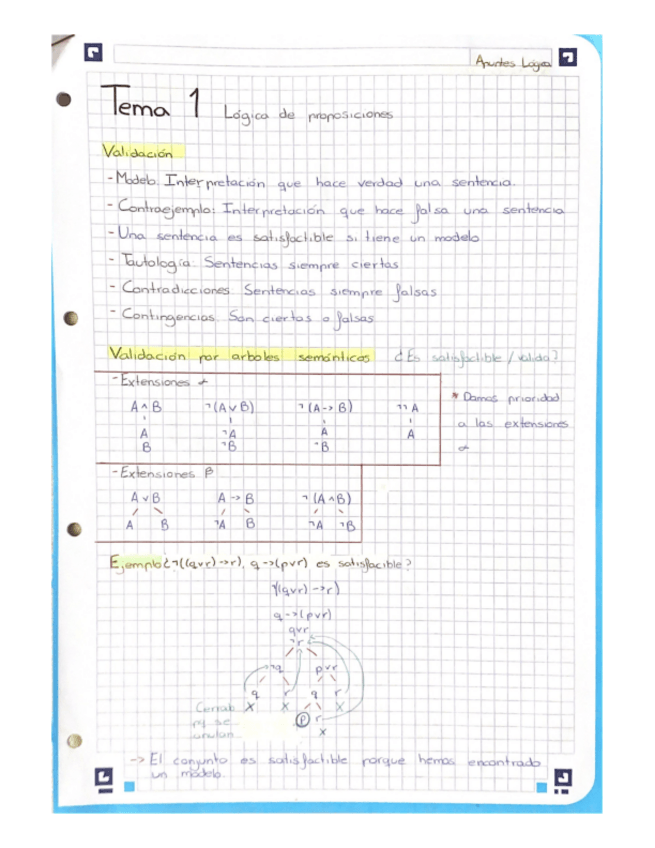 Apuntes Lógica
Tema 1 Lógica de proposiciones
Validación
- Modelo: Interpretación que hace verdad una sentencia.
- Contraejemplo: Interpretación que hace falsa una sentencia
- Una sentencia es satisfactible si tiene un modelo
- Tautología: Sentencias siempre ciertas
- Contradicciones: Sentencias siempre falsas
- Contingencias: Son ciertas o falsas
Validación por arboles semánticos ¿Es satisfactible / valida?
- Extensiones α
A ∧ B ¬(A ∨ B) ¬(A -> B) ¬¬A
A ¬A A A
B ¬B ¬B
* Damos prioridad
a las extensiones
α
- Extensiones β
A ∨ B A -> B ¬(A ∧ B)
A B ¬A B ¬A ¬B
Ejemplo ¿¬((q∨r)->r), q->(p∨r) es satisfacible?
¬((q∨r)->r)
q->(p∨r)
q∨r
¬r
¬q p∨r
q r q r
X X X
p r
X
r y se
anulan
-> El conjunto es satisfactible porque hemos encontrado
un modelo.